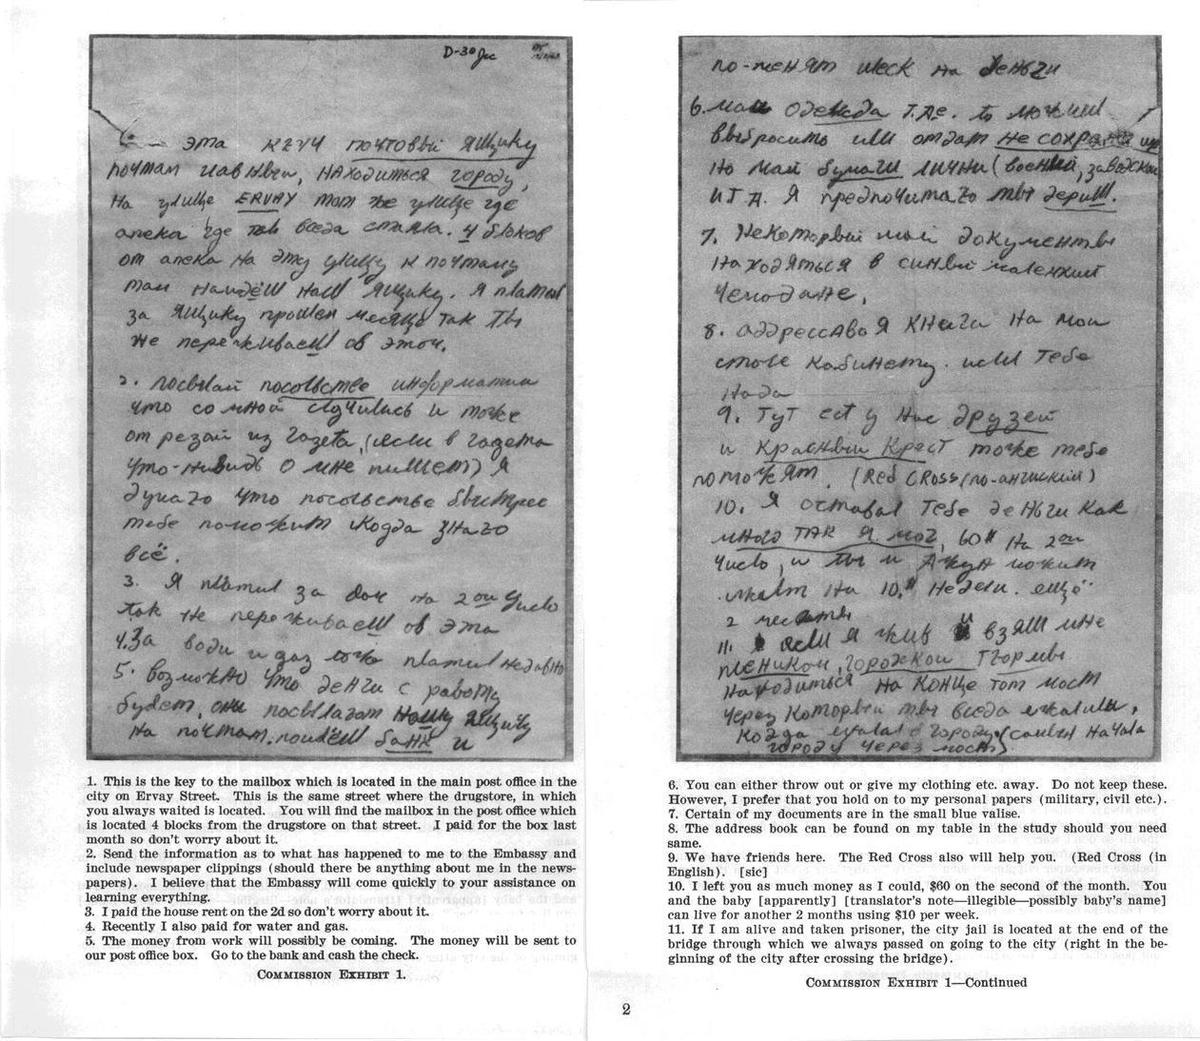 D-30
эта ключ почтовый ящику
находиться городу,
на улице ERVAY там же улице где
апека где ты всегда стаяла. 4 блоков
от апека на эту улицу к почтаму
там найдёш наш ящику. я платил
за ящику прошлы месяце так ты
не переживаеш об этом.
2. посылай посольстве информатия
что со мной случилась и тоже
от резай из газета, (если в газета
что-нибудь о мне пишет) я
думаю что посольстве быстрее
тебе поможит когда знаю
всё.
3. я платил за дом на 2ом число
так не переживаеш об эта
4. За воды и газ тоже платил недавно
5. Возможно что денги с работы
будет, они посылагат нашу ящику
на почтам. пойдёш банк и
1. This is the key to the mailbox which is located in the main post office in the
city on Ervay Street. This is the same street where the drugstore, in which
you always waited is located. You will find the mailbox in the post office which
is located 4 blocks from the drugstore on that street. I paid for the box last
month so don't worry about it.
2. Send the information as to what has happened to me to the Embassy and
include newspaper clippings (should there be anything about me in the news-
papers). I believe that the Embassy will come quickly to your assistance on
learning everything.
3. I paid the house rent on the 2d so don't worry about it.
4. Recently I also paid for water and gas.
5. The money from work will possibly be coming. The money will be sent to
our post office box. Go to the bank and cash the check.
COMMISSION EXHIBIT 1.
по-менят шеск на деньги
6. маи одежда т.д. ты можиш
выбросить или отдат не
но маи бумаги лични (военый, заводской
и т.д. я предпочитаю ты держиш.
7. Некоторвый мои документы
находяться в синвый маленкий
чемодане.
8. аддрессавоя книга на мои
столе кабинету. исли тебе
нада
9. Тут ест у нас друзей
и Красный Крест тоже тебе
поможят. (Red CROSS (по-английский)
10. я оставал тебе деньги как
много так я мог, 60$ на 2ом
число, и ты и можит
на 10.$ недели. ещё
2 месяты
11. если я жив и взяли мне
пленикои, городскои тюрмы
находиться на конце том мост
через которвый твы всега ежалили,
когда городу (самый начала
городу через мост).
6. You can either throw out or give my clothing etc. away. Do not keep these.
However, I prefer that you hold on to my personal papers (military, civil etc.).
7. Certain of my documents are in the small blue valise.
8. The address book can be found on my table in the study should you need
same.
9. We have friends here. The Red Cross also will help you. (Red Cross (in
English). [sic]
10. I left you as much money as I could, $60 on the second of the month. You
and the baby [apparently] [translator's note—illegible—possibly baby's name]
can live for another 2 months using $10 per week.
11. If I am alive and taken prisoner, the city jail is located at the end of the
bridge through which we always passed on going to the city (right in the be-
ginning of the city after crossing the bridge).
COMMISSION EXHIBIT 1—Continued
2